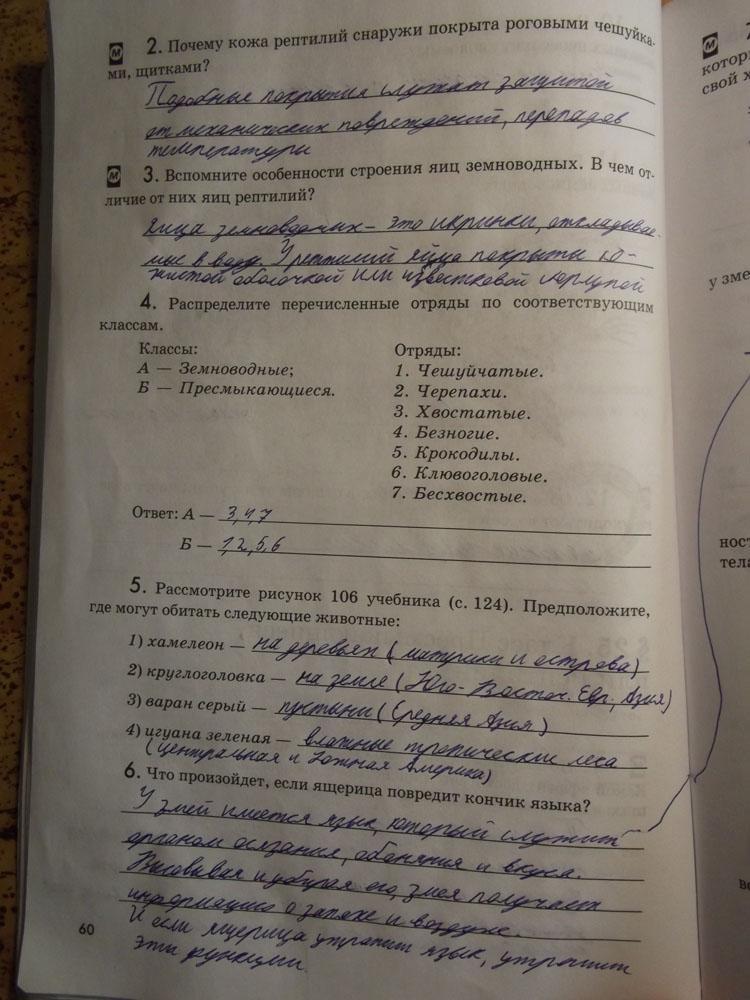 2. Почему кожа рептилий снаружи покрыта роговыми чешуйка-
ми, щитками?
Подобные покрытия служат защитой
от механических повреждений, перепадов
температуры
3. Вспомните особенности строения яиц земноводных. В чем от-
личие от них яиц рептилий?
Яица земноводных – это икринки, откладывае-
мые в воду. У рептилий яйца покрыты ко-
жистой оболочкой или известковой скорлупой
4. Распределите перечисленные отряды по соответствующим
классам.
Классы:
А — Земноводные;
Б — Пресмыкающиеся.
Отряды:
1. Чешуйчатые.
2. Черепахи.
3. Хвостатые.
4. Безногие.
5. Крокодилы.
6. Клювоголовые.
7. Бесхвостые.
Ответ: А — 3,4,7
Б — 1,2,5,6
5. Рассмотрите рисунок 106 учебника (с. 124). Предположите,
где могут обитать следующие животные:
1) хамелеон — на деревьях (материки и острова)
2) круглоголовка — на земле (Юго-Восточ. Евр., Азия)
3) варан серый — пустыни (Средняя Азия)
4) игуана зеленая — влажные тропические леса
(центральная и Южная Америка)
6. Что произойдет, если ящерица повредит кончик языка?
У змей имеется язык, который служит
органом осязания, обоняния и вкуса.
Высовывая и убирая его, змея получает
информацию о запахе и воздухе.
И если ящерица утратит язык, утратит
эти функции.
60
котор
свой х
у зме
ност
тела